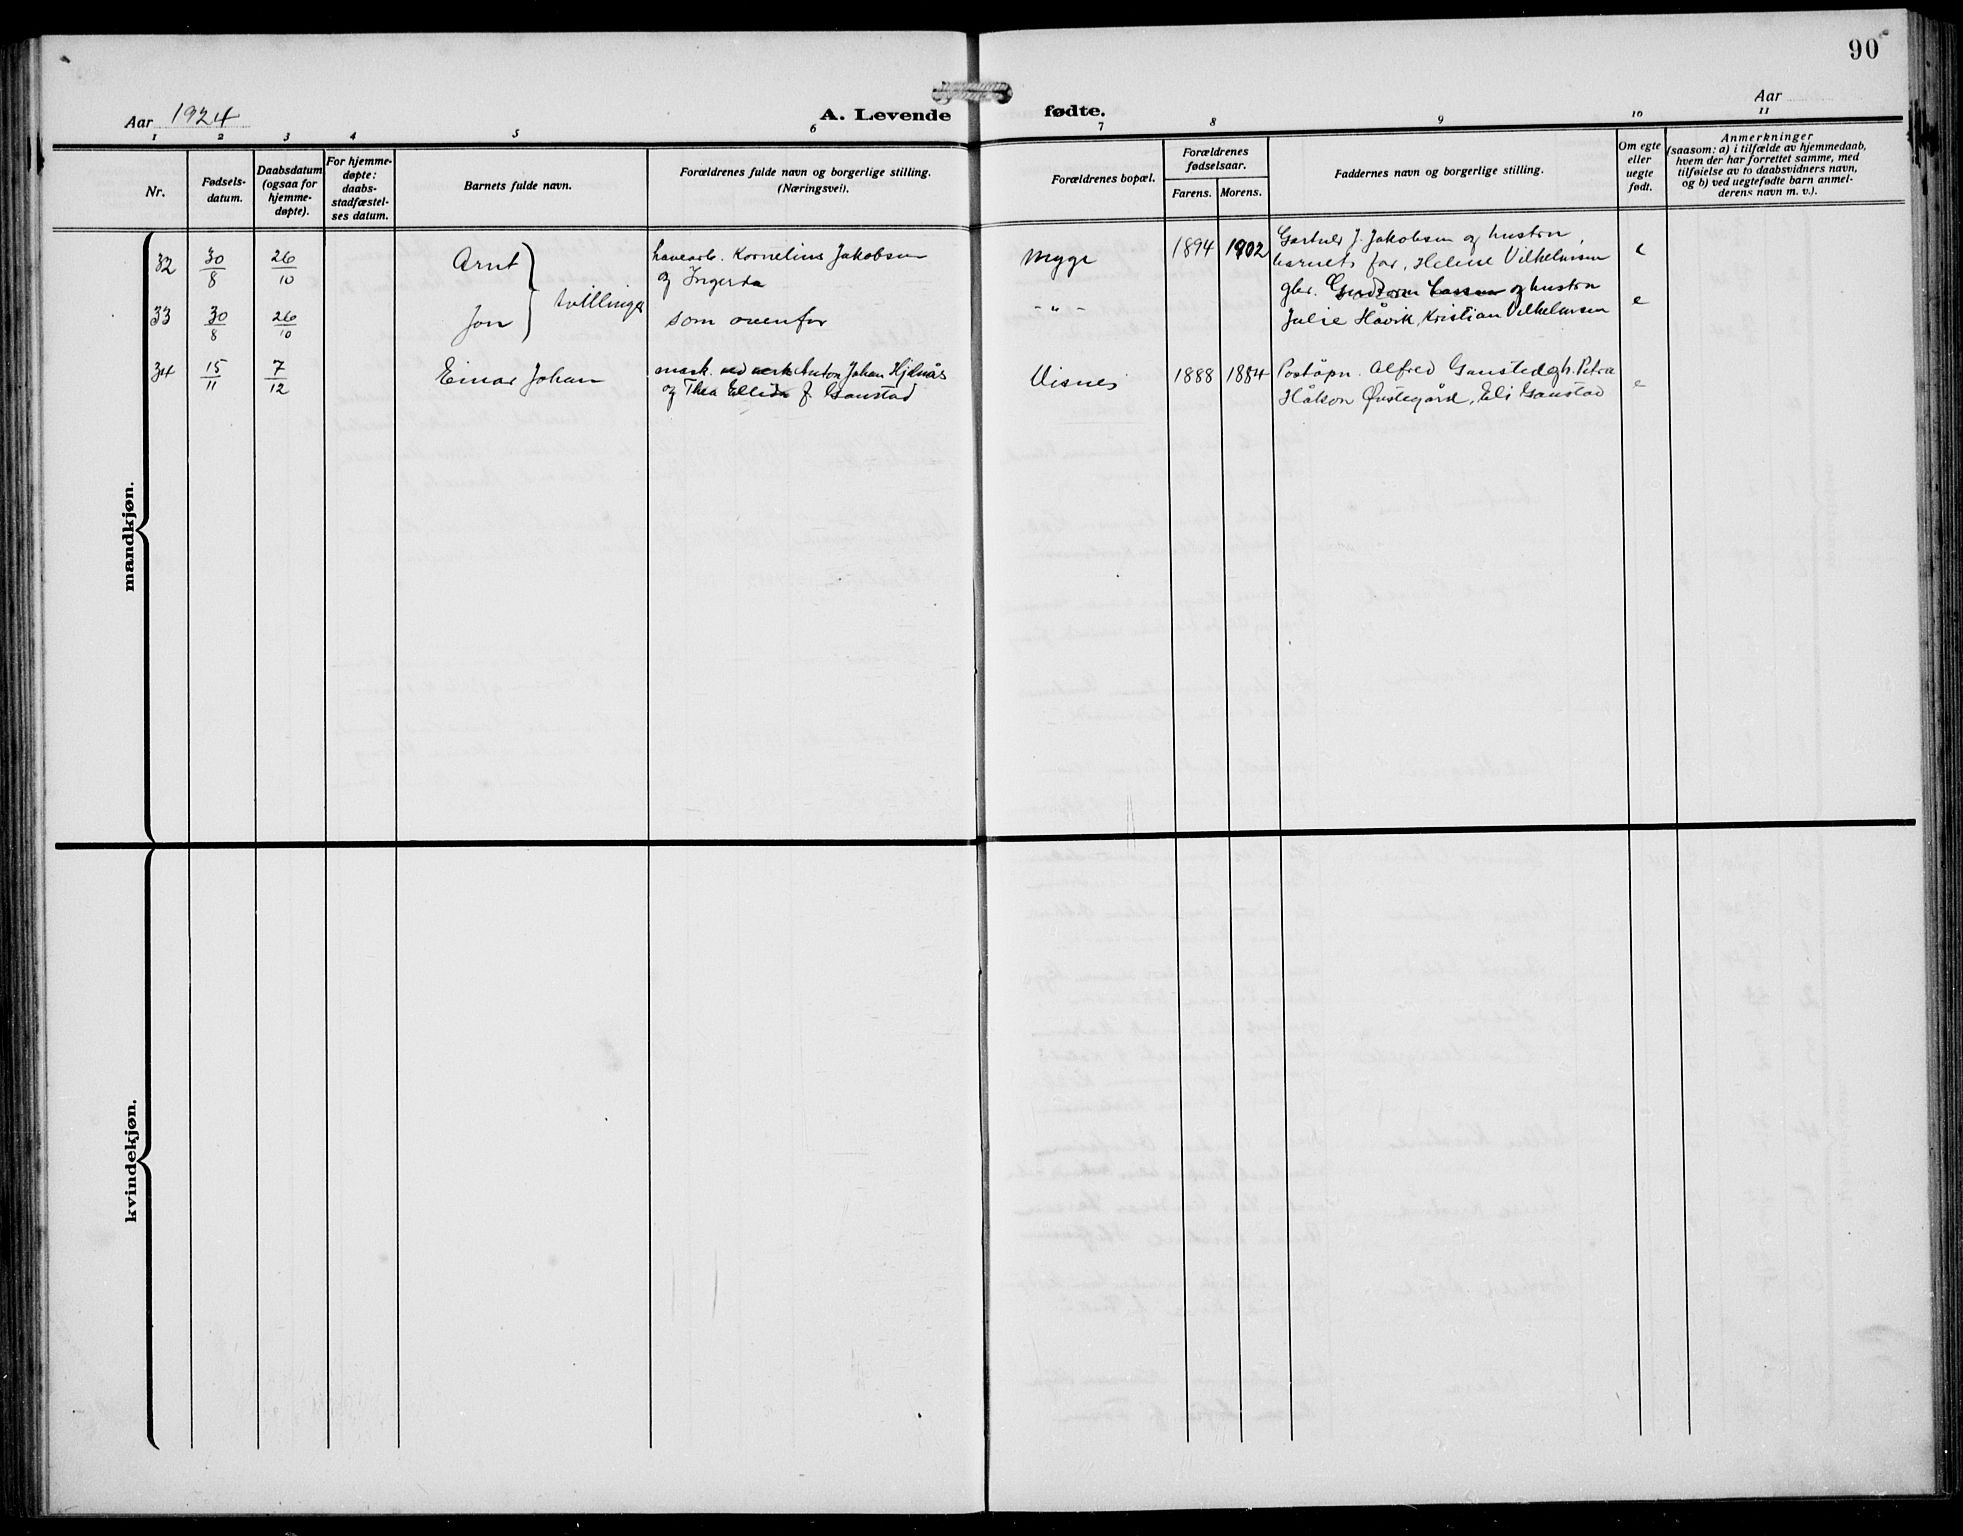 90
Aar 1924
A. Levende fødte.
Aar
1 2 3 4 5 6 7 8 9 10 11
Nr.
Fødsels-
datum.
Daabsdatum
(ogsaa for
hjemme-
døpte).
For hjemme-
døpte:
daabs-
stadfæstel-
ses datum.
Barnets fulde navn.
Forældrenes fulde navn og borgerlige stilling.
(Næringsvei).
Forældrenes bopæl.
Forældrenes
fødselsaar.
Farens. Morens.
Faddernes navn og borgerlige stilling.
Om egte
eller
uegte
født.
Anmerkninger
(saasom: a) i tilfælde av hjemmedaab,
hvem der har forrettet samme, med
tilføielse av to daabsvidners navn,
og b) ved uegtefødte barn anmel-
derens navn m. v.).
mandkjøn.
32 30/8 26/10 Arnt havearb. Kornelius Jakobsen Myge 1894 1902 Gartner J. Jakobsen og hustru,
og Ingerda barnets far, Helene Vilhelmsen e
tvillinger
gbr. og hustru
33 30/8 26/10 Jon som ovenfor -"- Julie Håvik, Kristian Vilhelmsen e
34 15/11 7/12 Einar Johan mask. Anton Johan Hjelnås Visnes 1888 1884 Poståpn. Alfred Petra
og Thea f. Gaustad Håkon Østegård, Eli Gaustad e
kvindekjøn.